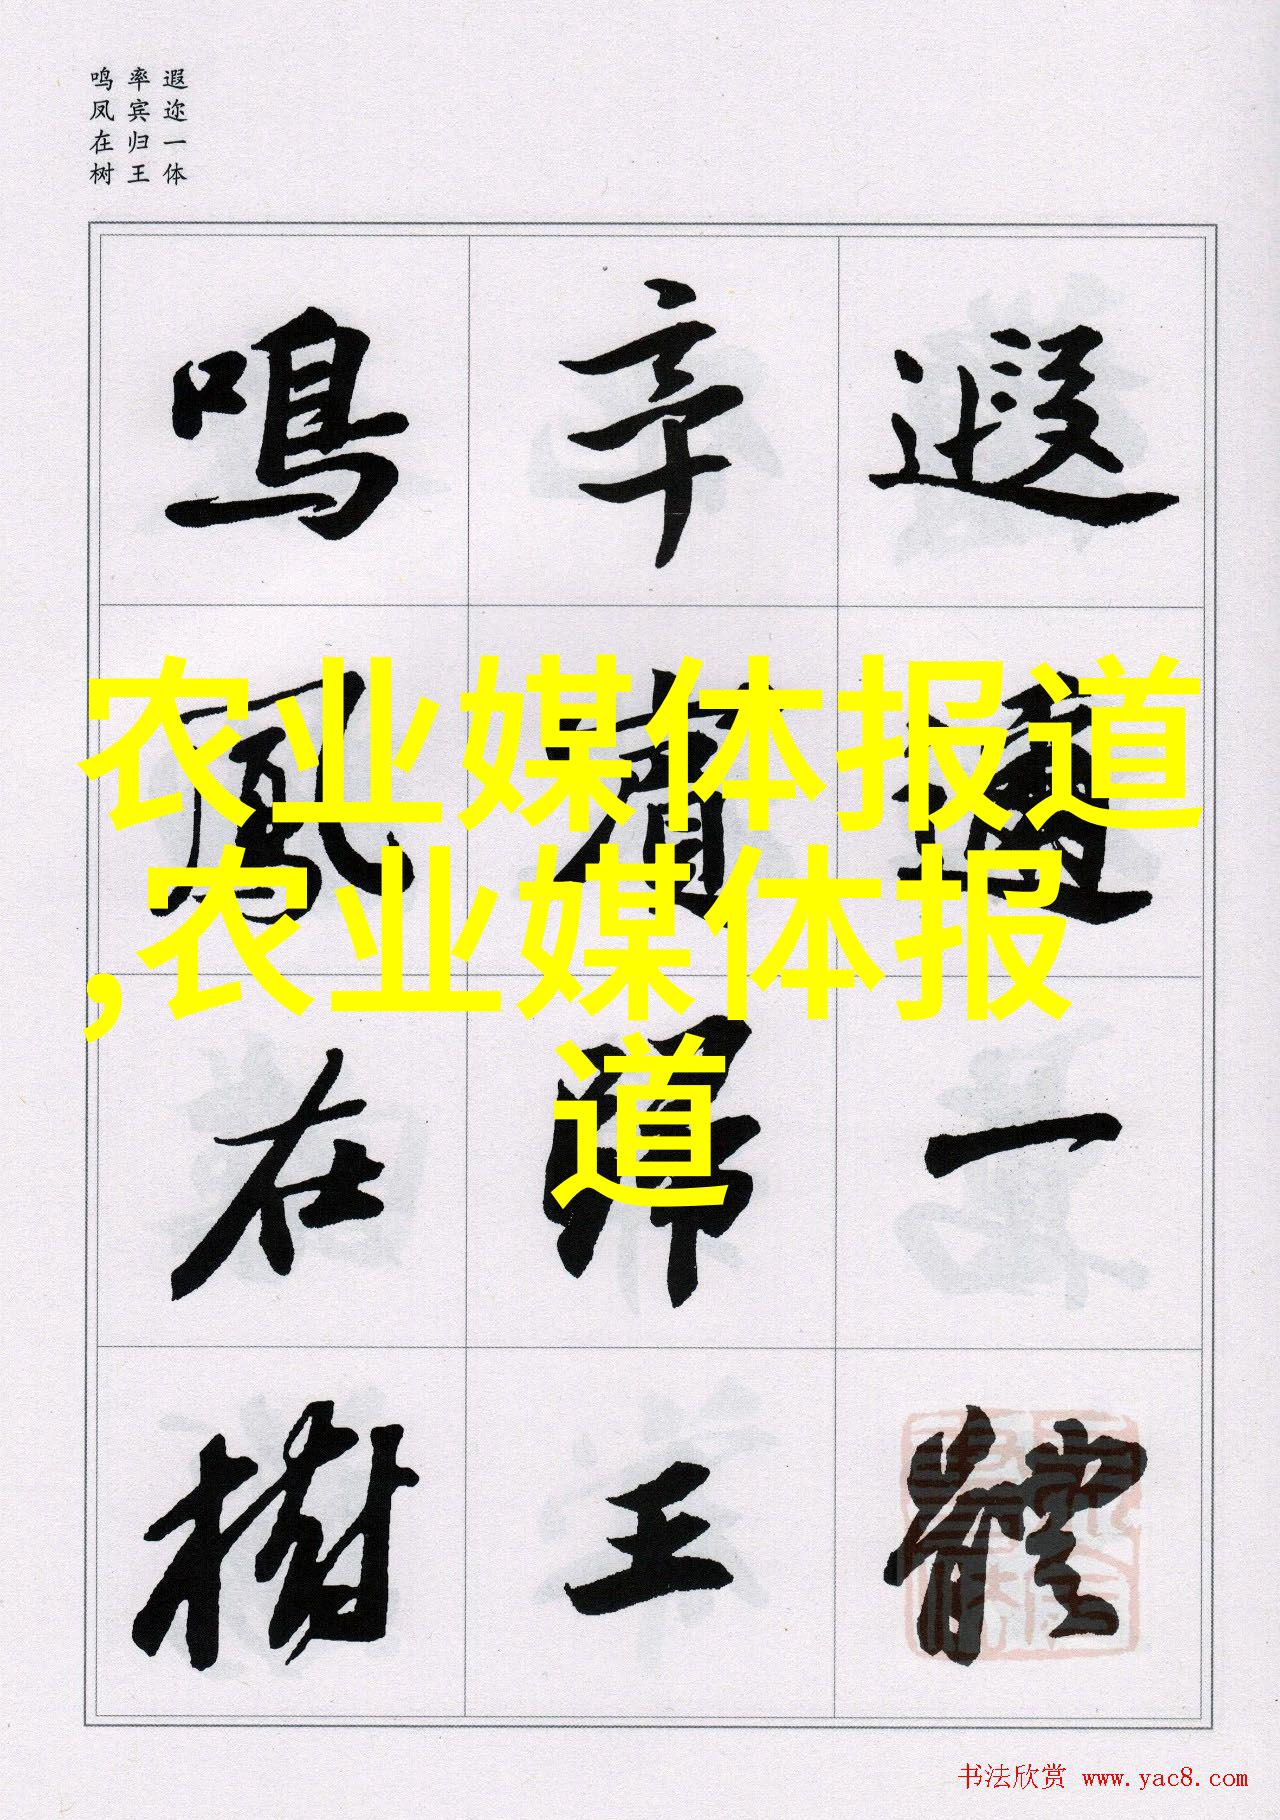 遐迩一体
率宾归王
鸣凤在树
遐邇一體
率賓歸王
鳴鳳在樹
农业媒体报道
,农业媒体报
道
书法欣赏 www.yac8.com